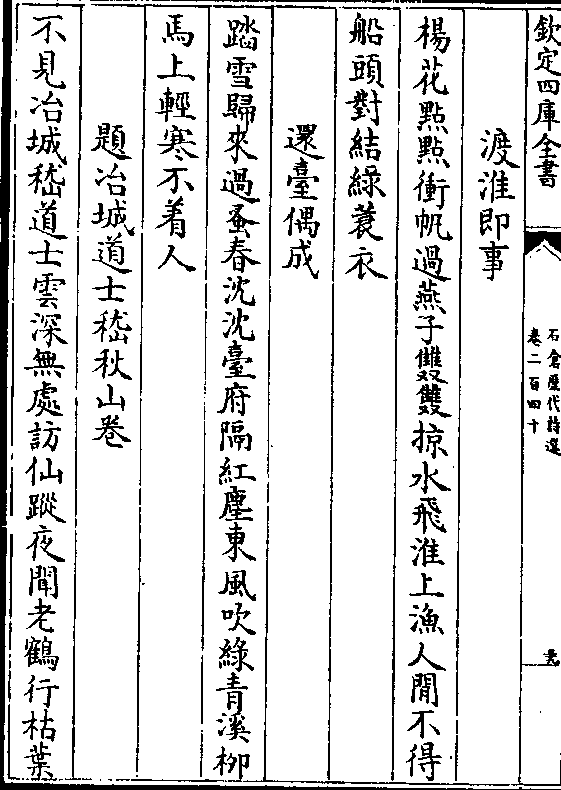 欽定四庫全書
石倉歷代詩選
卷二百四十
渡淮即事
楊花點點衝帆過燕子雙雙掠水飛淮上漁人閒不得
船頭對結綠蓑衣
還臺偶成
踏雪歸來過蚤春沈沈臺府隔紅塵東風吹綠青溪栁
馬上輕寒不着人
題冶城道士嵇秋山卷
不見冶城嵇道士雲深無處訪仙蹤夜聞老鶴行枯葉